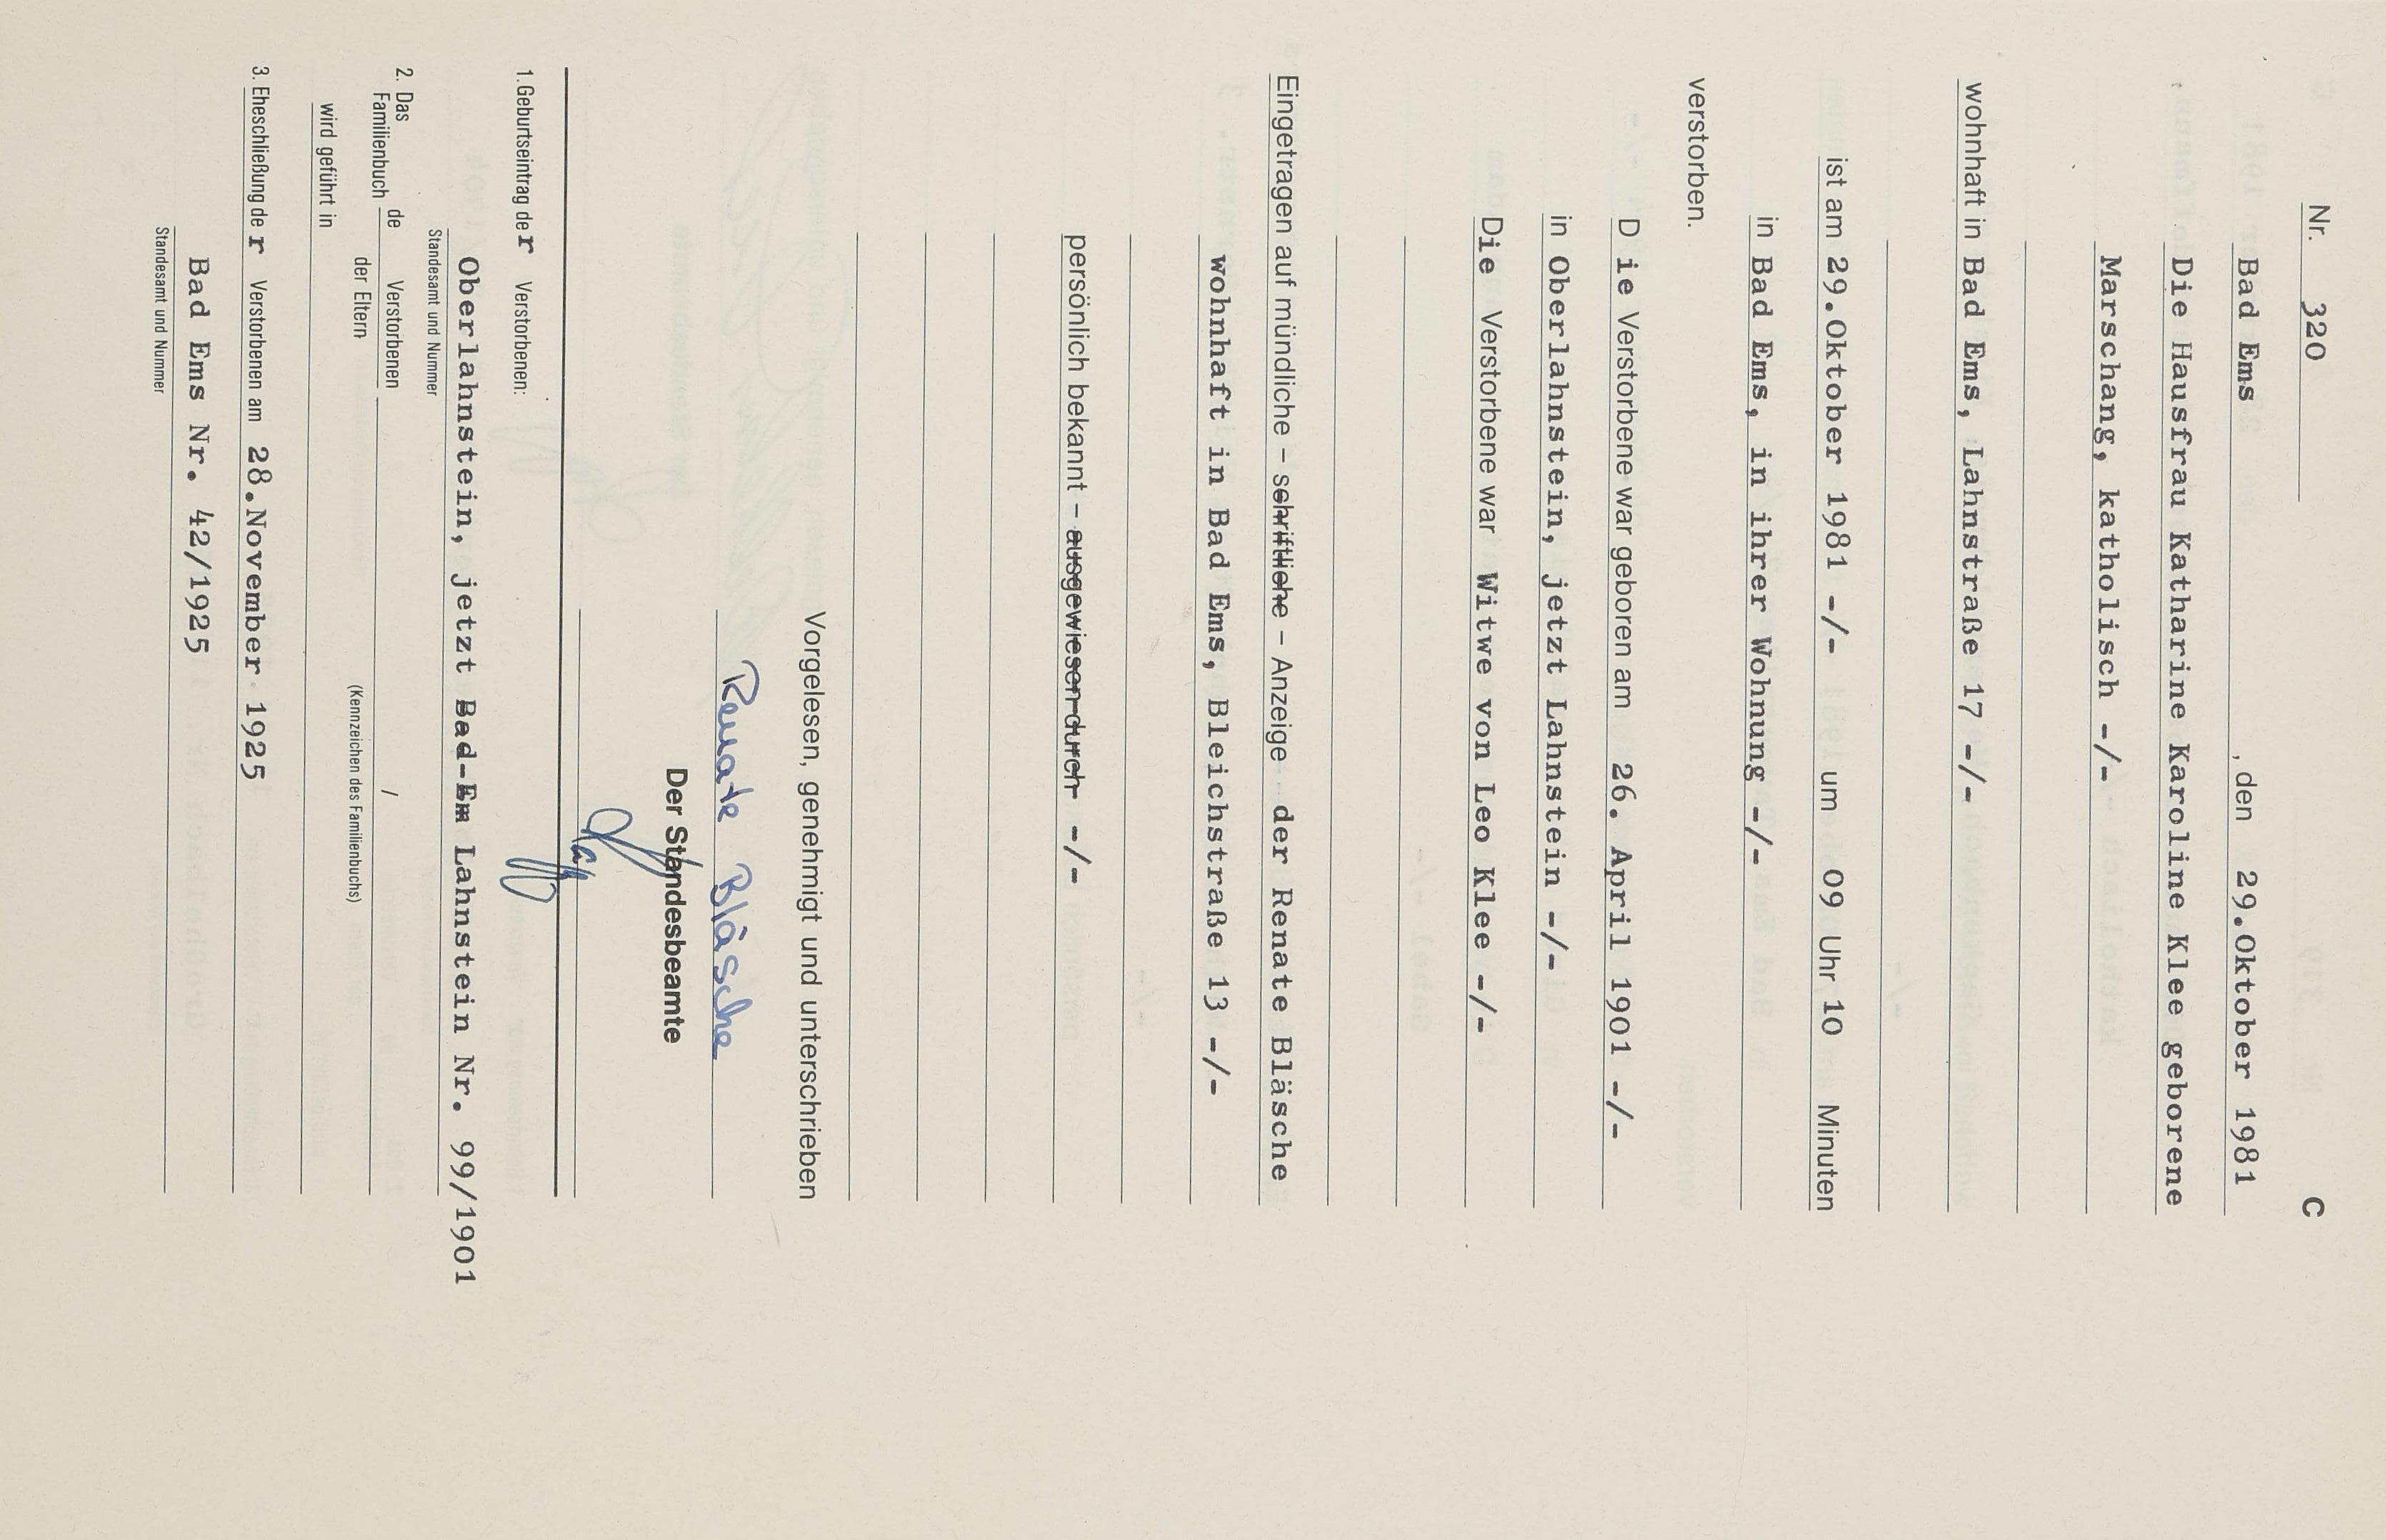 Nr. 320 C
Bad Ems, den 29.Oktober 1981
Die Hausfrau Katharine Karoline Klee geborene
Marschang, katholisch -/-
wohnhaft in Bad Ems, Lahnstraße 17 -/-
ist am 29.Oktober 1981 -/- um 09 Uhr 10 Minuten
in Bad Ems, in ihrer Wohnung -/-
verstorben.
Die Verstorbene war geboren am 26. April 1901 -/-
in Oberlahnstein, jetzt Lahnstein -/-
Die Verstorbene war Witwe von Leo Klee -/-
Eingetragen auf mündliche – schriftliche – Anzeige der Renate Bläsche
wohnhaft in Bad Ems, Bleichstraße 13 -/-
persönlich bekannt – ausgewiesen durch -/-
Vorgelesen, genehmigt und unterschrieben
Renate Bläsche
Der Standesbeamte
1. Geburtseintrag der Verstorbenen:
Oberlahnstein, jetzt Bad-Em Lahnstein Nr. 99/1901
Standesamt und Nummer
2. Das Familienbuch de Verstorbenen /
der Eltern (Kennzeichen des Familienbuchs)
wird geführt in
3. Eheschließung der Verstorbenen am 28.November 1925
Bad Ems Nr. 42/1925
Standesamt und Nummer